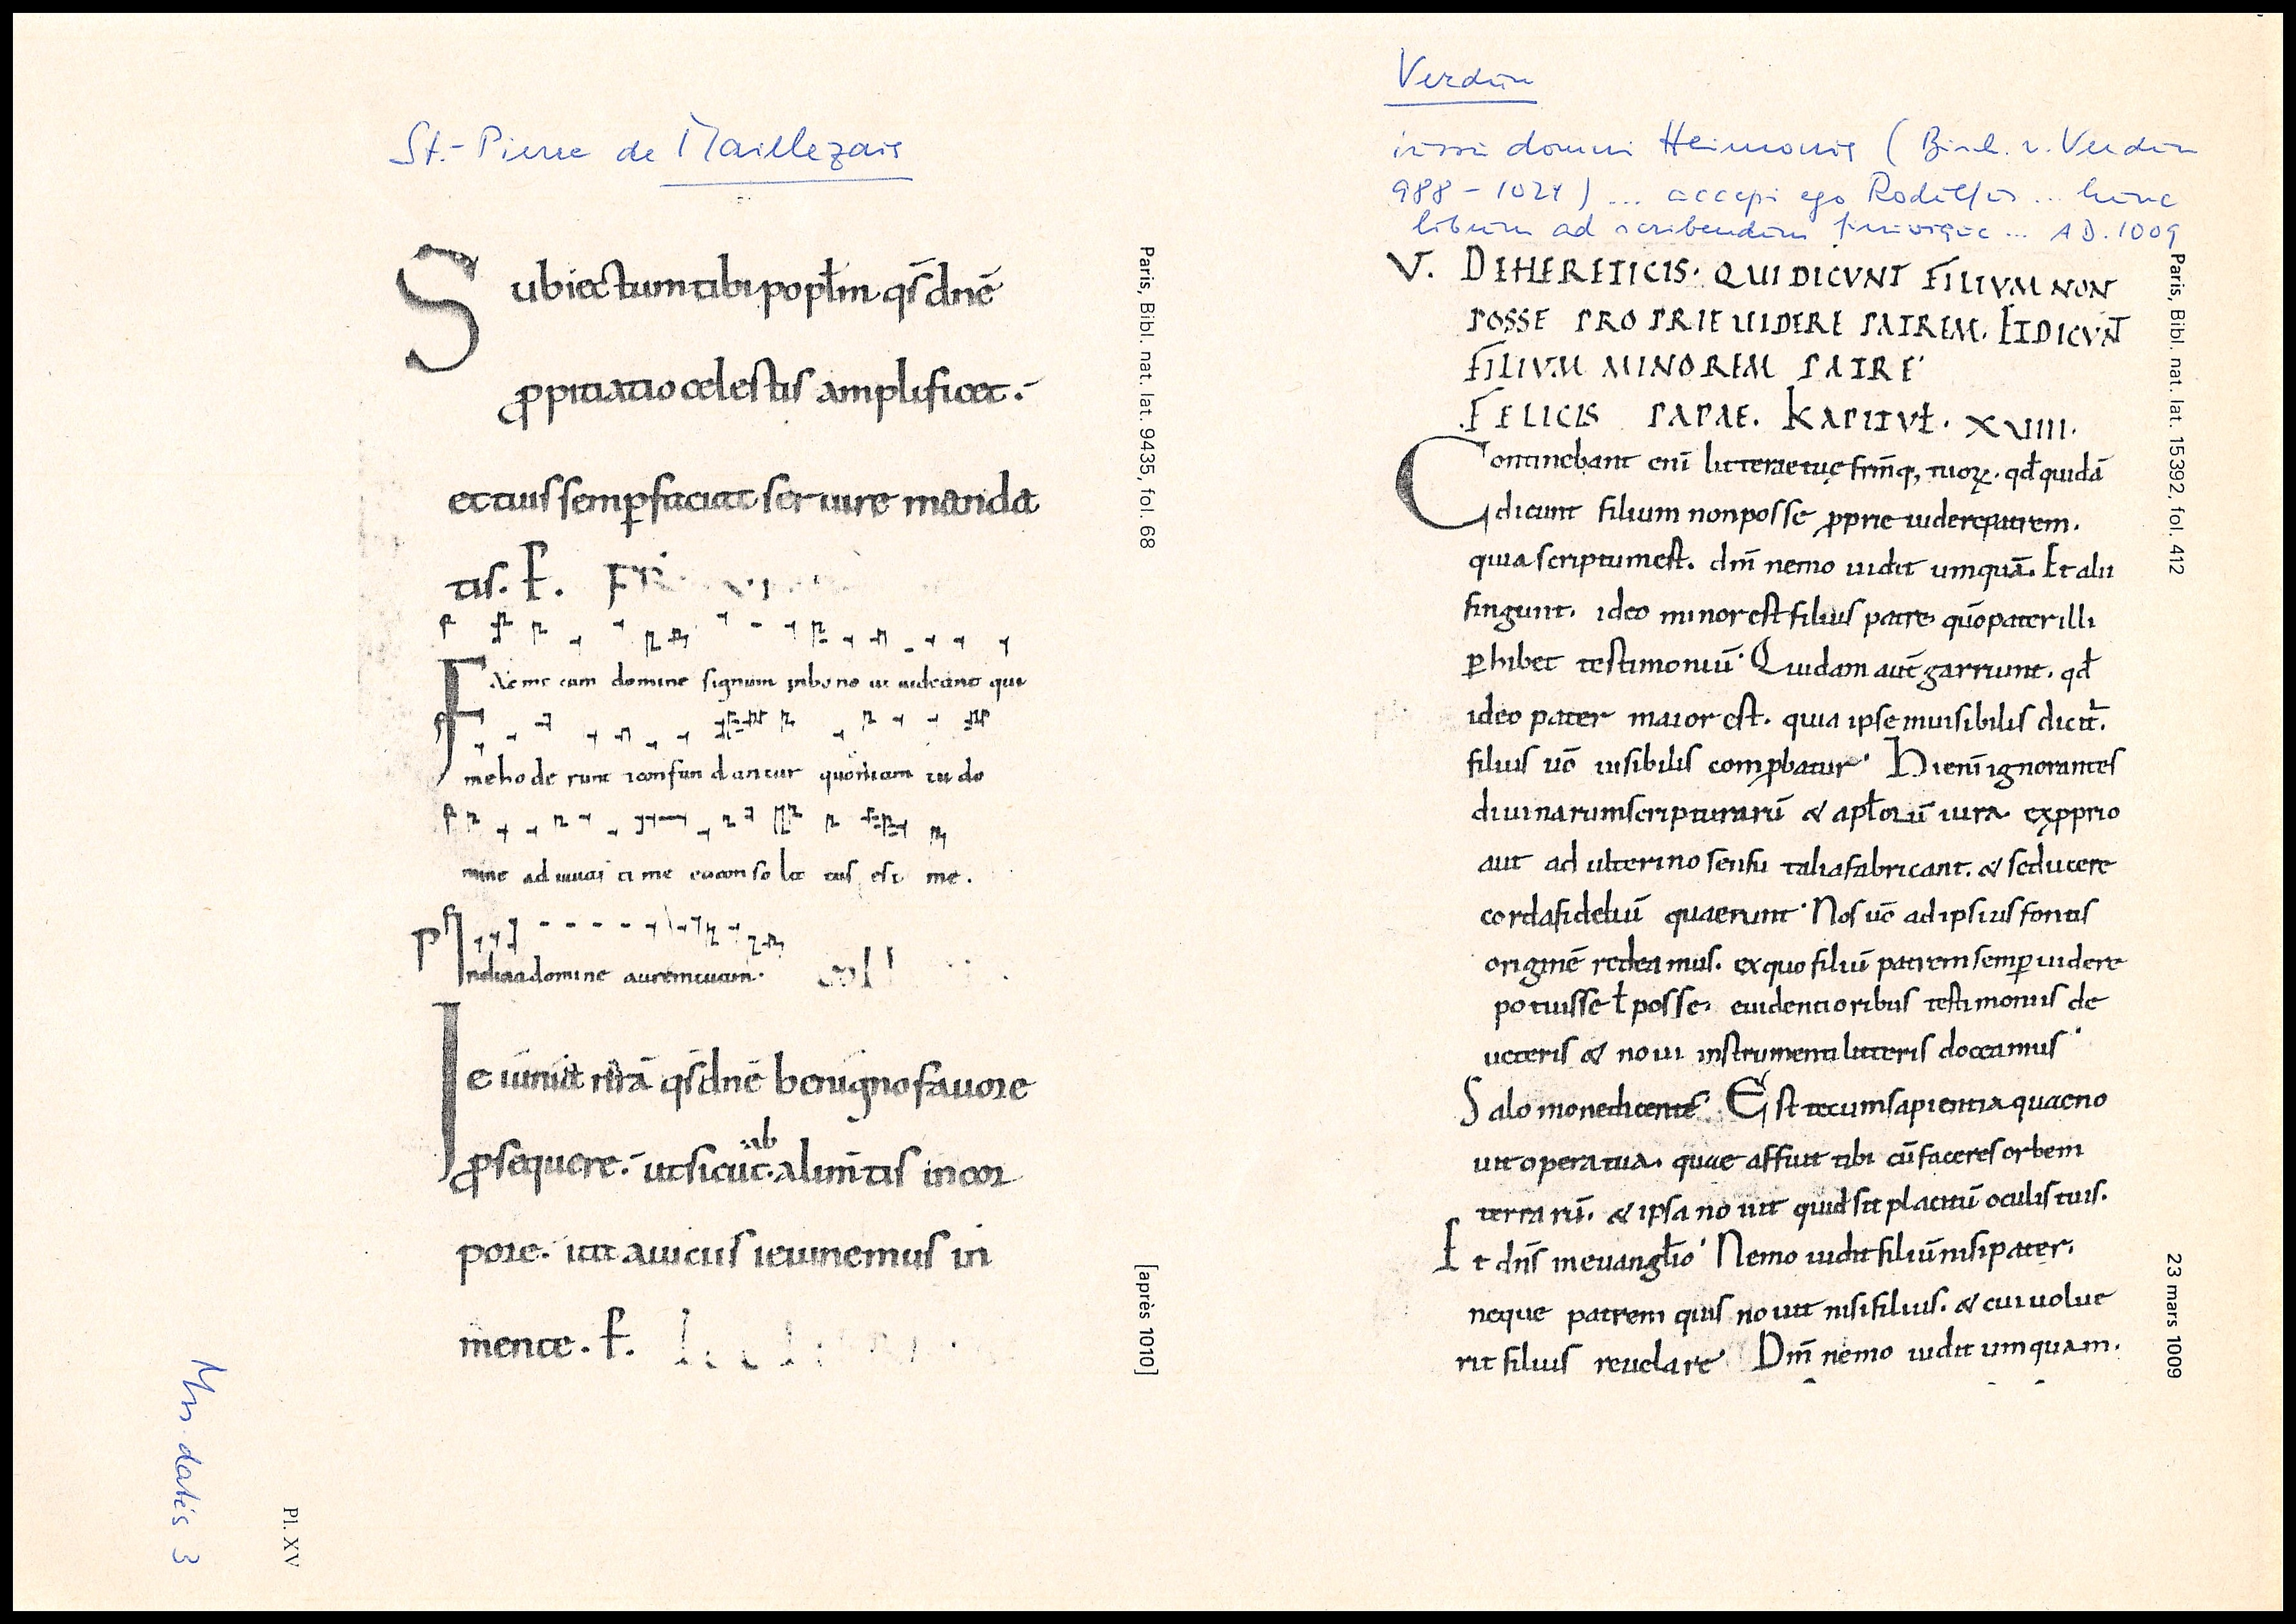 St.-Pierre de Maillezais
Subiectum tibi popl̄m qs̄ dnē
ꝓpitiatio celestis amplificet.
et tuis semꝑ faciat seruire manda
tis. P̄.
Fac mecum domine signum inbono ut uideant qui
meho de runt 7confun dantur quoniam tu do
mine adiuuas ti me etconsola tus est me.
Ps Inclina domine aurem tuam. coll
Ieiunia nrā qs̄ dnē benigno fauore
ꝓsequere. ut sicut ab alimtis incor
pore. ita auiciis ieiunemus in
mente. P̄.
Paris, Bibl. nat. lat. 9435, fol. 68
[après 1010]
Mss. datés 3
Pl. XV
Verdun
iussu domni Heimonis (Bisch. v. Verdun
988 - 1024) ... accepi ego Rodulfus ... hunc
librum ad scribendum finivique ... AD. 1009
V. DEHERETICIS. QUI DICVNT FILIVM NON
POSSE PROPRIE UIDERE PATREM. ETDICVNT
FILIVM MINOREM PATRE
FELICIS PAPAE. KAPITVŁ. XVIIII.
Continebant enī litterae tuę frm̄q; tuoꝝ. qđ quidā
dicunt filium non posse ꝓprie uidere patrem.
quia scriptum est. dm̄ nemo uidit umquā. Et alii
fingunt. ideo minor est filius patre, quō pater illi
ꝑhibet testimoniū. Quidam autē garriunt. qđ
ideo pater maior est. quia ipse inuisibilis dicit̄.
filius uō uisibilis comꝓbatur. Hi enī ignorantes
diuinarum scripturarū & apłorū iura exꝓprio
aut adulterino sensu talia fabricant. & seducere
corda fideliū quaerunt. Nos uō ad ipsius fontis
originē redeamus. ex quo filiū patrem semꝑ uidere
potuisse ł posse, euidentioribus testimoniis de
ueteris & noui instrumenti litteris doceamus
Salomone dicente. Est tecum sapientia quae no
uit opera tua. quae affuit tibi cū faceres orbem
terrarū. & ipsa nouit quid sit placitū oculis tuis.
Et dn̄s in euangłio. Nemo uidit filiū nisi pater.
neque patrem quis nouit nisi filius. & cui uolue
rit filius reuelare. Dm̄ nemo uidit umquam.
Paris, Bibl. nat. lat. 15392, fol. 412
23 mars 1009